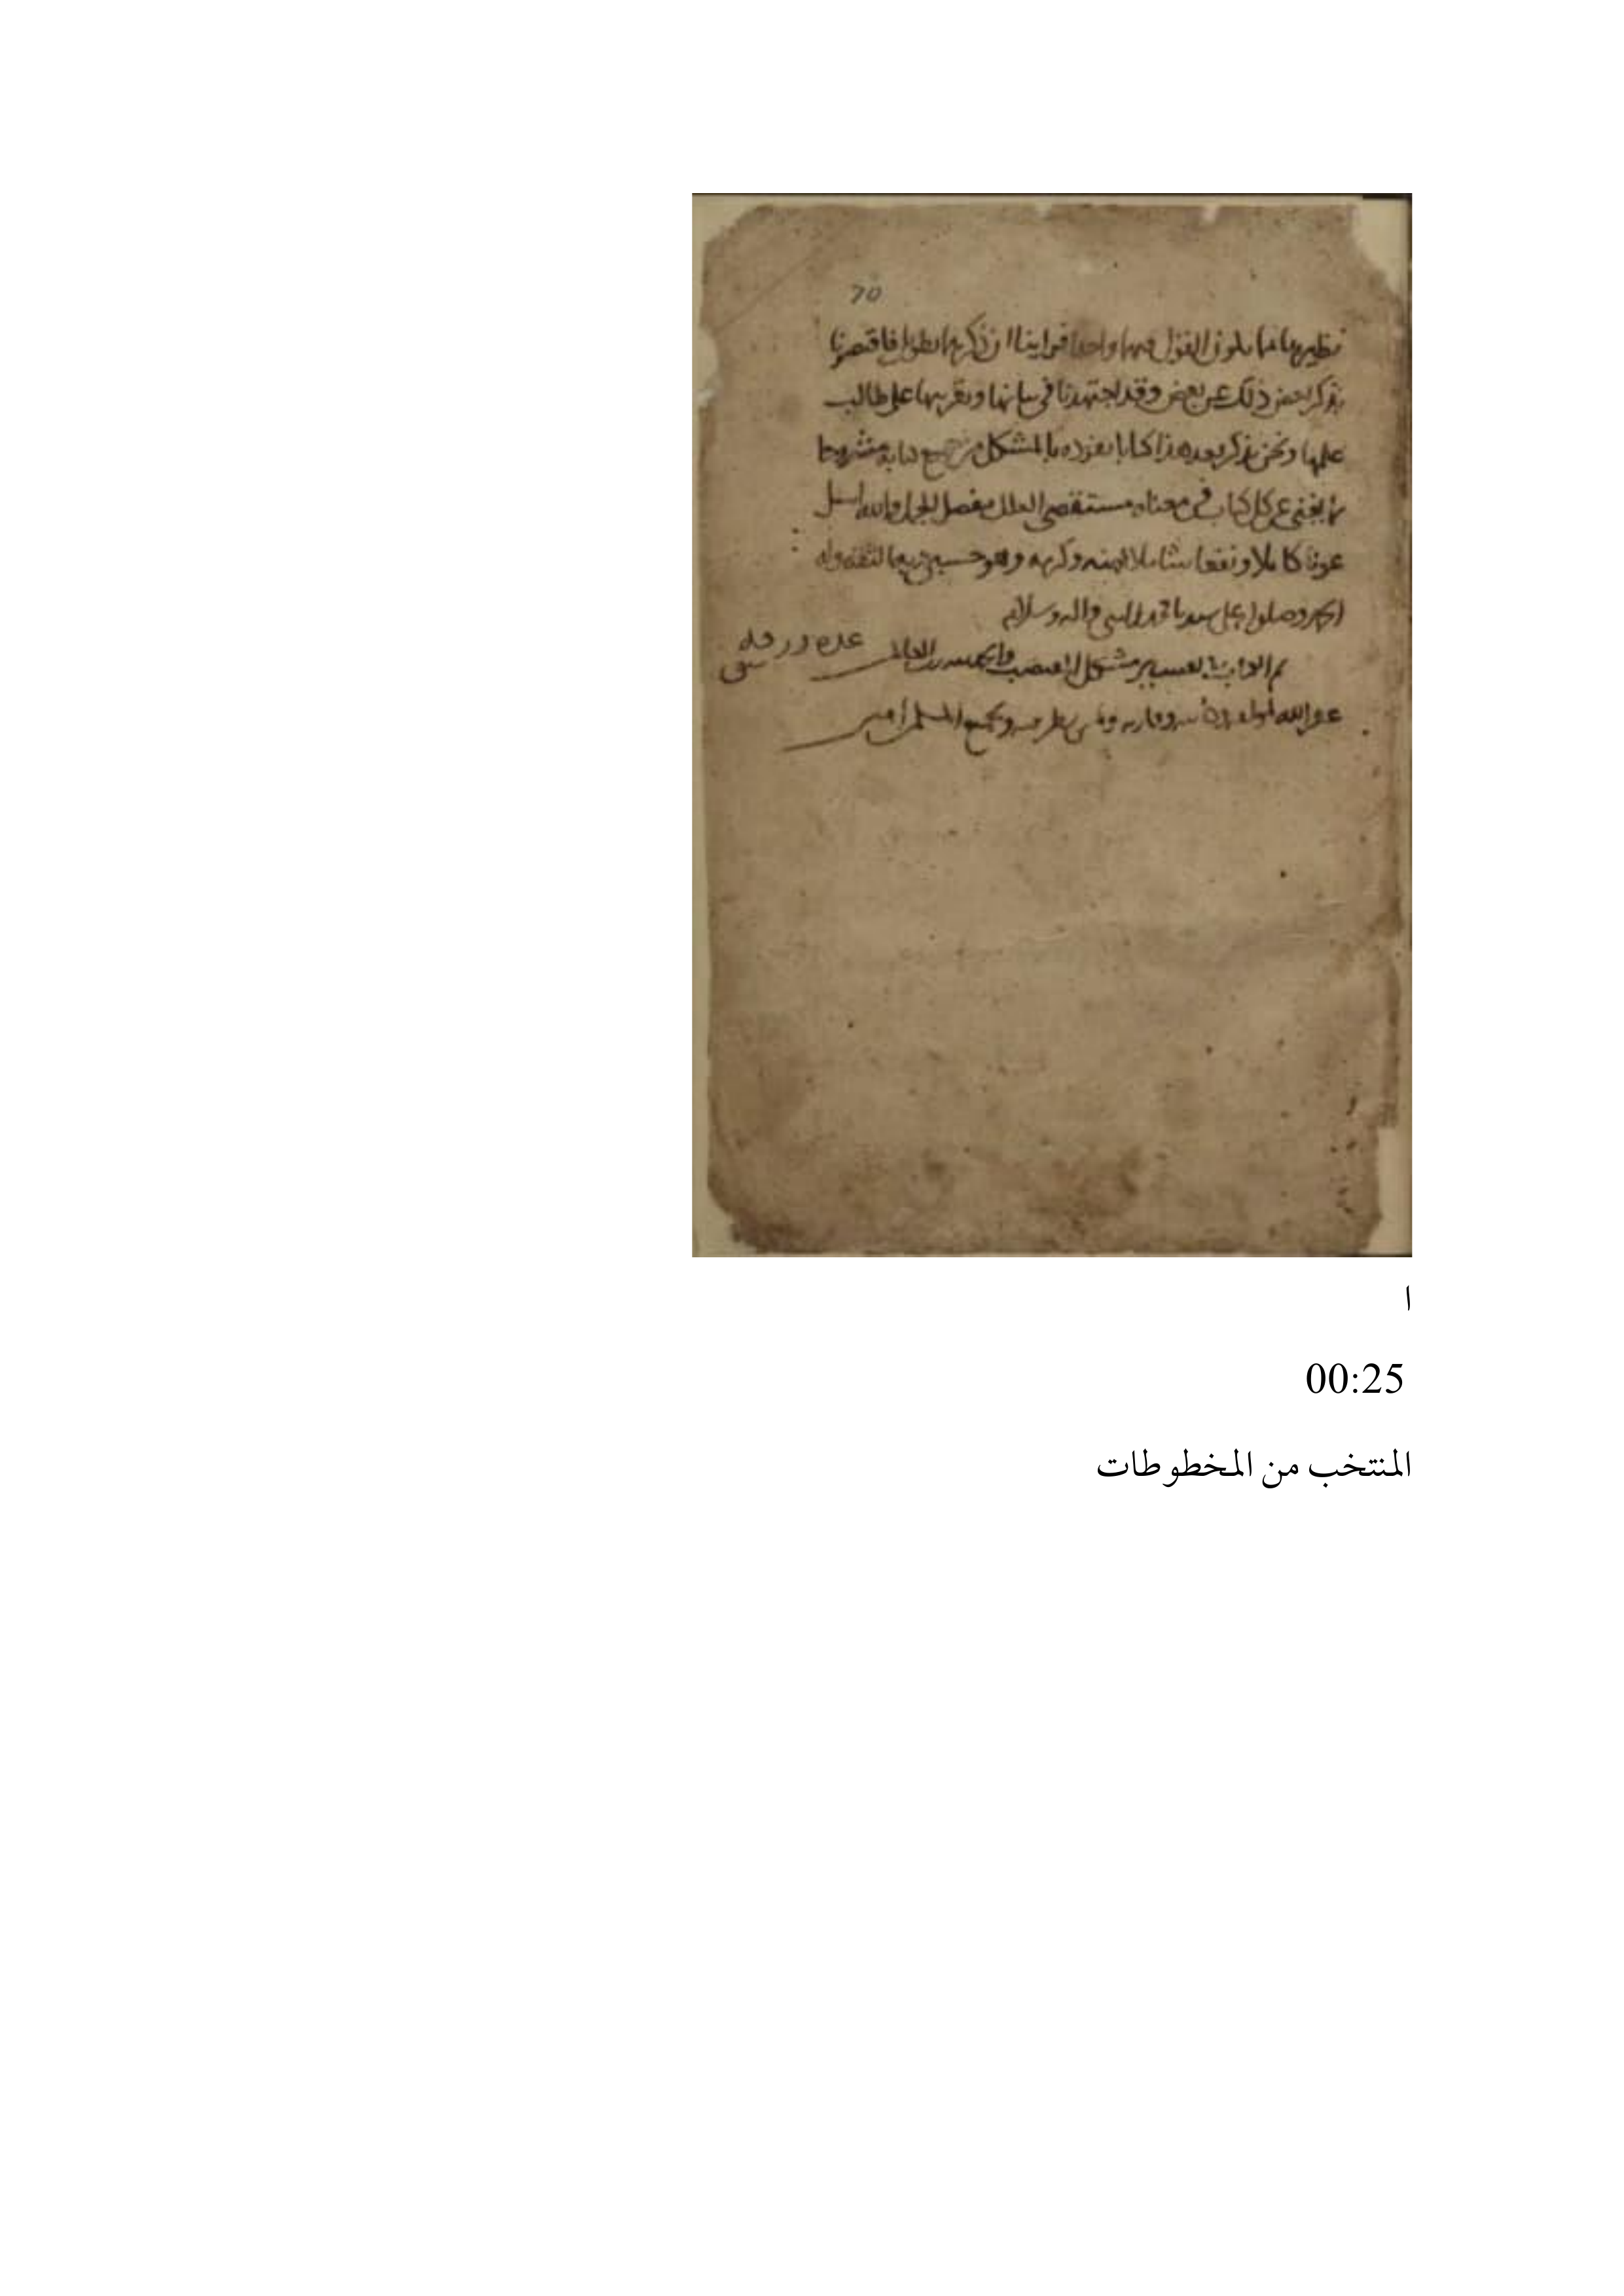 70
نظيرها مما يكون القول فيها واحدا فراينا ان ذكرها يطول فاقتصرنا
بذكر بعض ذلك عن بعض وقد اجتهدنا في بيانها وتقريبها على طالب
علمها ونحن نذكر بعد هذا كتابا نفرده بالمشكل من جميع مشروحا
يغني عن كل كتاب في معناه مستقصى العلل مفصل الجمل والله اسل
عونا كاملا ونفعا شاملا بمنه وكرمه وهو حسبي
وصلواته على سيدنا محمد النبي واله وسلامه
تم الكتاب تفسير مشكل والحمد لله رب العالمين
عدد ورقه
عفر الله وقاريه ولمن نظر فيه ولجميع المسلمين امين
ا
00:25
المنتخب من المخطوطات